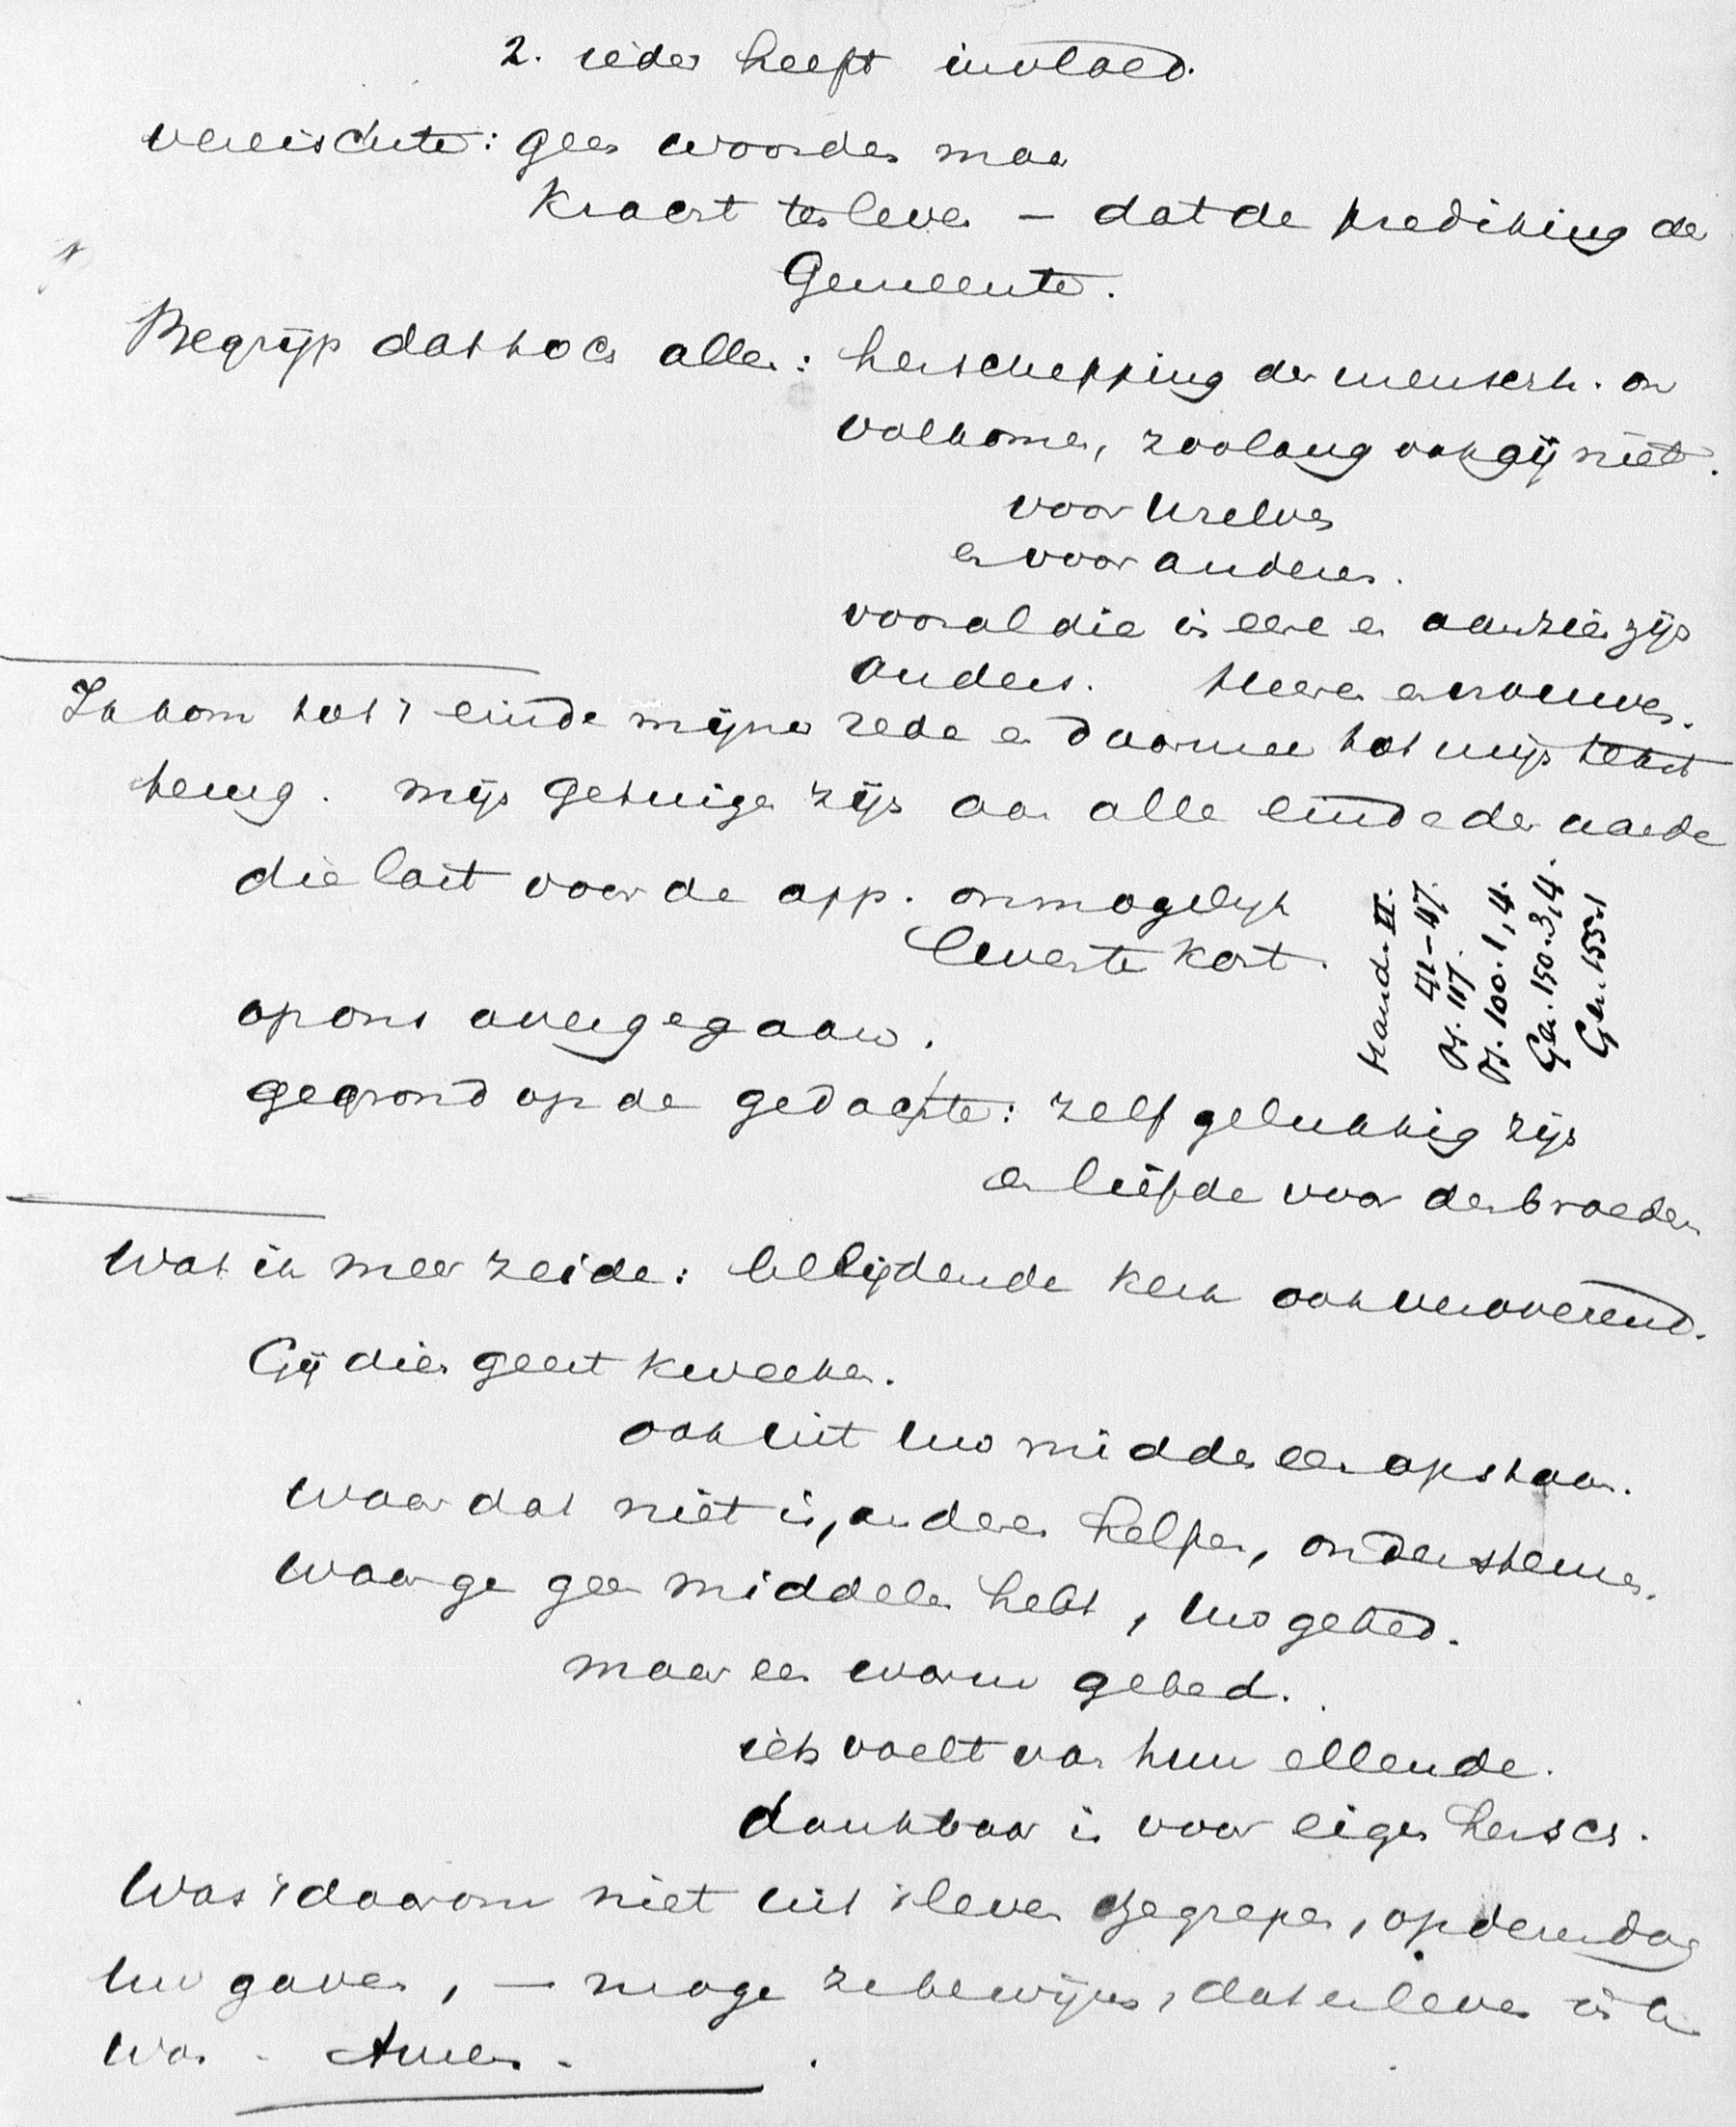 2. ieder heeft invloed.
vereischte: geen woorden maar
Kracht ten leven – dat de prediking der
Gemeente.
Begrijp dat toch allen: herschepping der mensch. on
volkomen, zoolang ook gij niet.
voor Uzelven
en voor anderen.
vooral die in eere en aanzien zijn
Ouders. Heeren en vrouwen.
Ik kom tot 't einde mijner rede en daarmee tot mijn tekst
terug. mijn getuigen zijn aan alle einde der aarde
die last voor de app. onmogelijk
leven te kort.
op ons overgegaan.
gegrond op de gedachte: zelf gelukkig zijn
en liefde voor den broeder
Wat ik meer zeide: belijdende Kerk ook veroverend.
Gij dien geest kweeken.
ook uit uw midden een opstaan.
Waar dat niet is, anderen helpen, ondersteunen.
Waar ge geen middelen hebt, uw gebed.
maar een warm gebed.
iets voelt van hun ellende.
dankbaar is voor eigen hersch.
Was 't daarom niet uit 't leven gegrepen, op dezen dag
uw gaven, – moge ze bewijzen, dat er leven in U
was. Amen.
Hand. II.
41–47.
Ps. 117.
Ps. 100. 1, 4.
Gez. 150. 3, 4.
Gez. 155.1